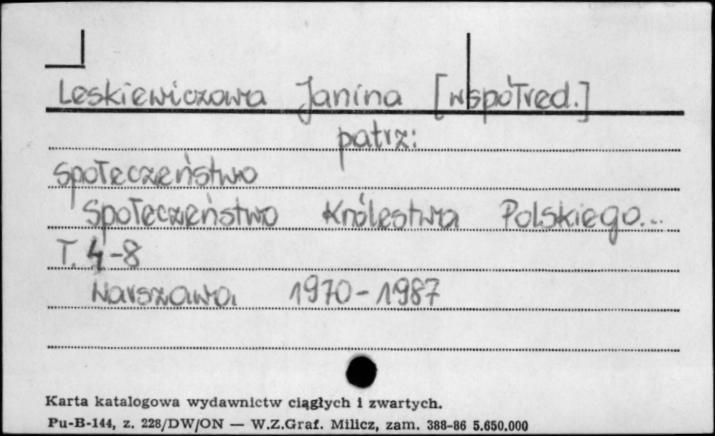 Leskiewiczowa Janina [współred.]
patrz:
Społeczeństwo
Społeczeństwo Królestwa Polskiego...
T. 4-8
Warszawa 1970-1987
Karta katalogowa wydawnictw ciągłych i zwartych.
Pu-B-144, z. 228/DW/ON — W.Z.Graf. Milicz, zam. 388-86 5.650.000